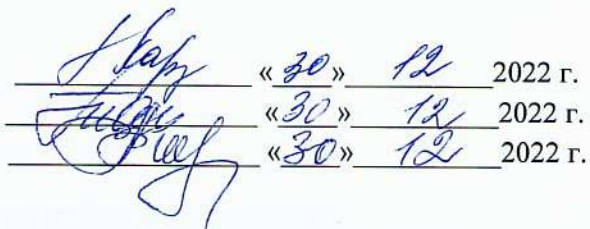 «30» 12 2022 г.
«30» 12 2022 г.
«30» 12 2022 г.